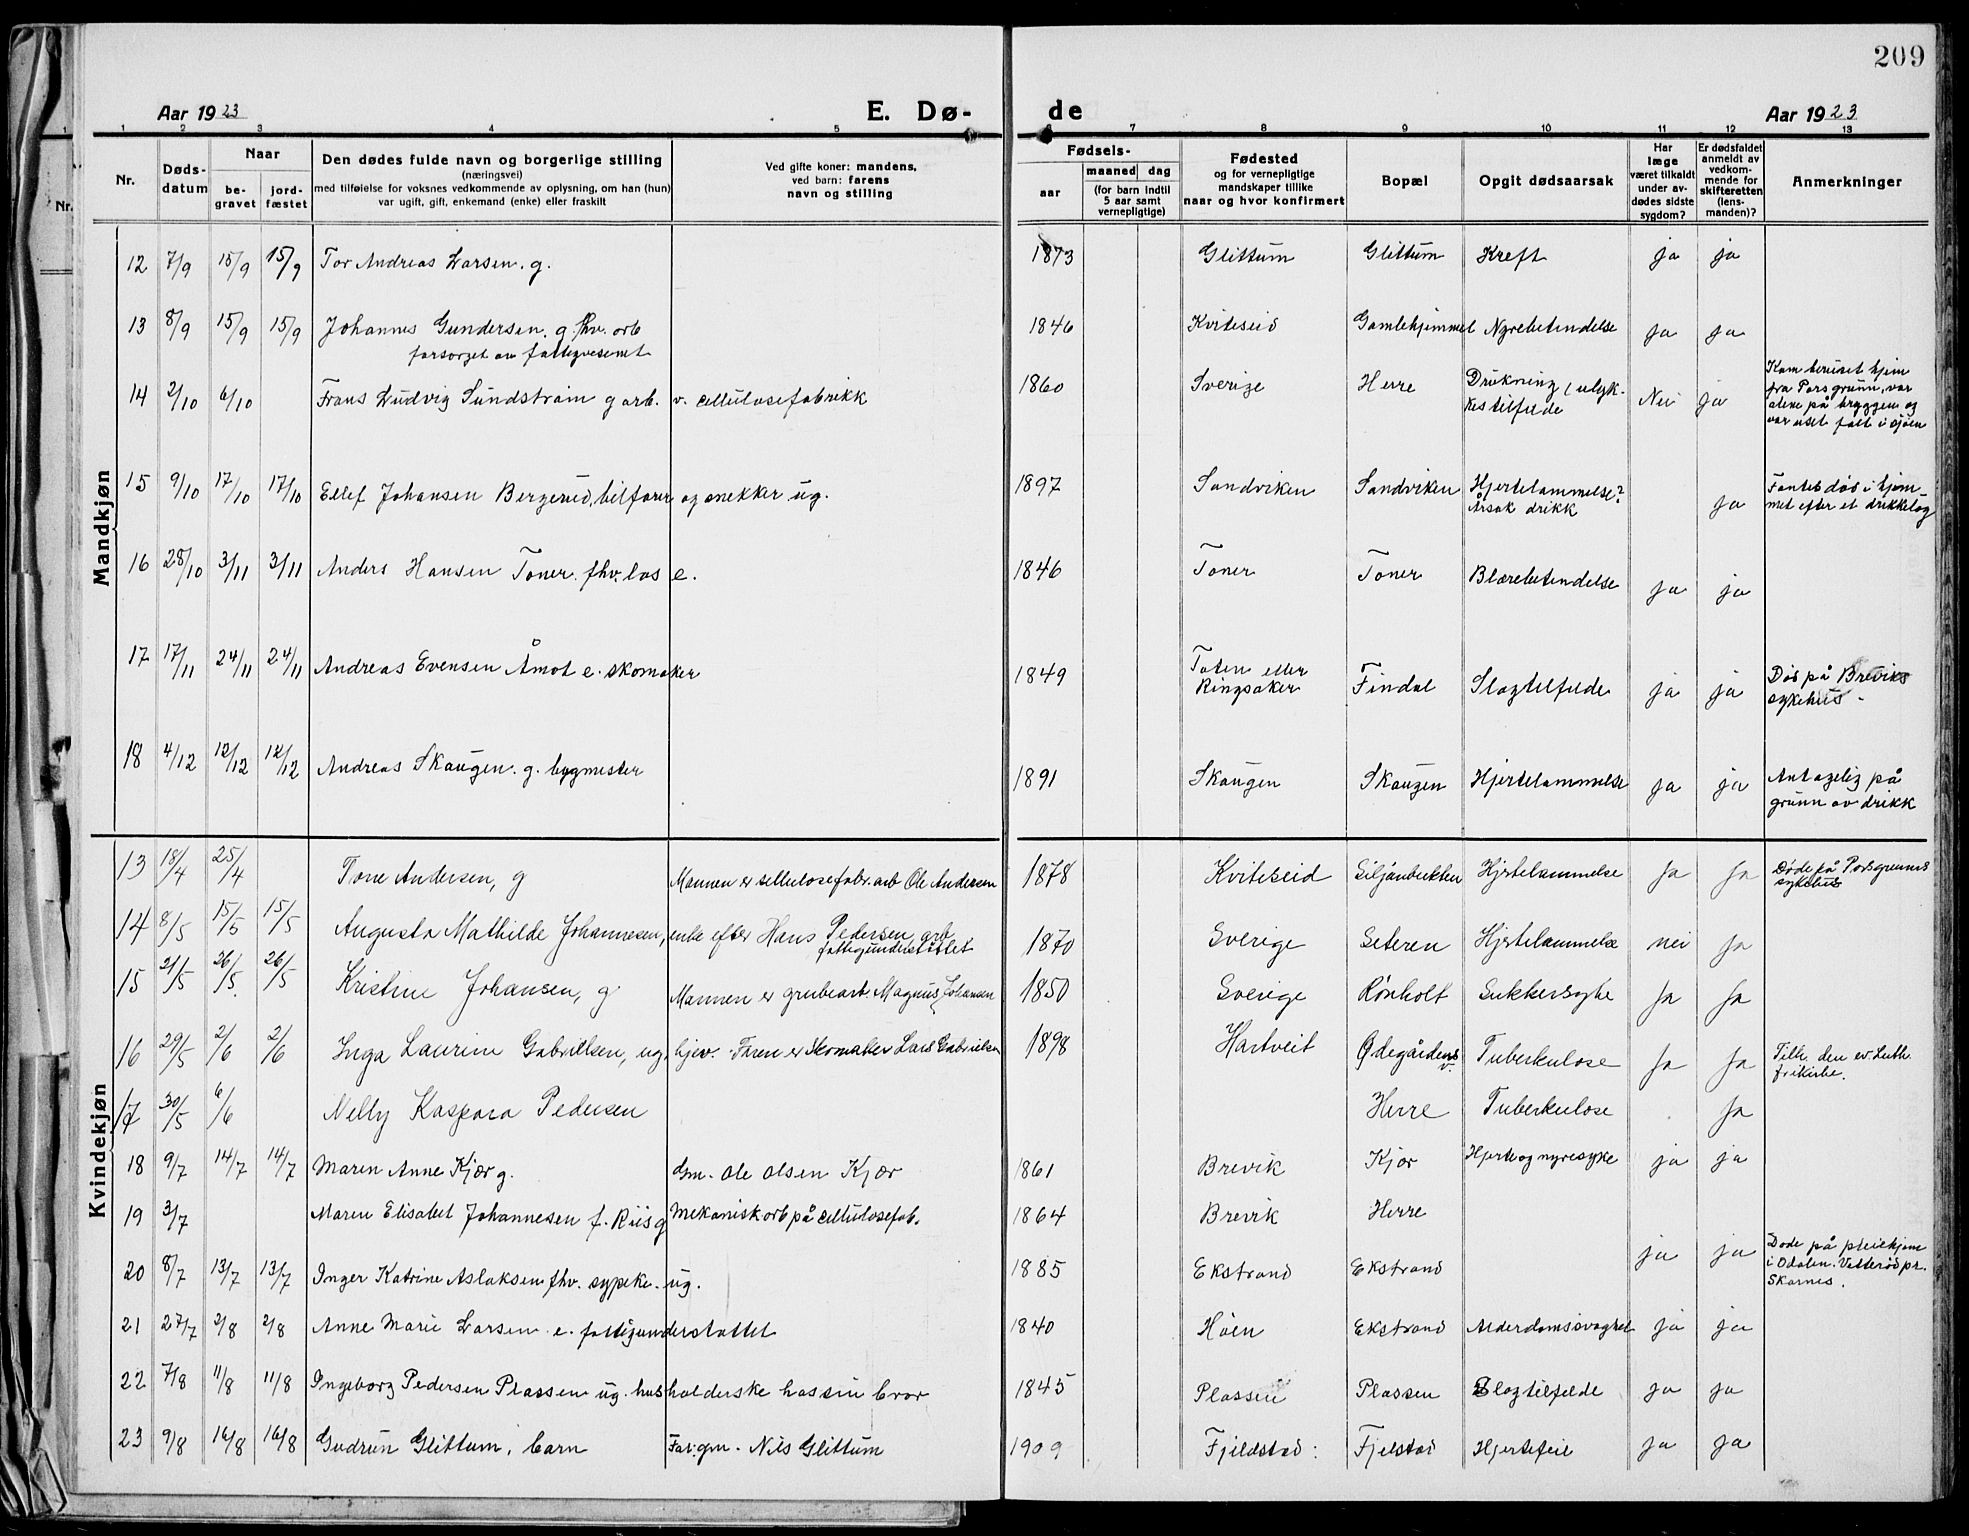 209
Aar 1923
E. Dø-
de
Aar 1923
1 2 3 4 5 7 8 9 10 11 12 13
Nr.
Døds-
datum
Naar
be-
gravet
jord-
fæstet
Den dødes fulde navn og borgerlige stilling
(næringsvei)
med tilføielse for voksnes vedkommende av oplysning, om han (hun)
var ugift, gift, enkemand (enke) eller fraskilt
Ved gifte koner: mandens,
ved barn: farens
navn og stilling
Fødsels-
aar
maaned dag
(for barn indtil
5 aar samt
vernepligtige)
Fødested
og for vernepligtige
mandskaper tillike
naar og hvor konfirmert
Bopæl
Opgit dødsaarsak
Har
læge
været tilkaldt
under av-
dødes sidste
sygdom?
Er dødsfaldet
anmeldt av
vedkom-
mende for
skifteretten
(lens-
manden)?
Anmerkninger
Mandkjøn
12 7/9 15/9 15/9 Tor Andreas Larsen. g. 1873 Glittum Glittum Kreft ja ja
13 8/9 15/9 15/9 Johannes Gundersen. g. fhv. arb 1846 Kviteseid Gamlehjemmet Nyrebetendelse ja ja
forsørget av fattigvesenet
14 2/10 6/10 Frans Ludvig Sundstrøm g arb. v. cellulosefabrikk 1860 Sverige Herre Drukning, ulyk-
kestilfelde Nei ja
Kom beruset hjem
fra Porsgrunn, var
alene på bryggen og
var uset falt i sjøen
15 9/10 17/10 17/10 Ellef Johansen Bergerud, bilfører og snekker ug. 1897 Sandviken Sandviken Hjertelammelse?
Årsak drikk ja
Fantes død i hjem-
met efter et drikkelag
16 28/10 3/11 3/11 Anders Hansen Toner. fhv. los e. 1846 Toner Toner Blærebetendelse ja ja
17 17/11 24/11 24/11 Andreas Evensen Åmot e. skomaker 1849 Toten eller
Ringsaker Findal Slagtilfelde ja ja
Død på Breviks
sykehus -
18 4/12 12/12 12/12 Andreas Skaugen. g. bygmester 1891 Skaugen Skaugen Hjertelammelse ja ja
Antagelig på
grunn av drikk
Kvindekjøn
13 18/4 25/4 Tone Andersen, g Mannen er cellulosefabr. arb Ole Andersen 1878 Kviteseid Siljanbukten Hjertelammelse Ja Ja Døde på Porsgrunns
sykehus
14 8/5 15/5 15/5 Augusta Mathilde Johannesen, enke efter Hans Pedersen arb 1870 Sverige Seteren Hjertelammelse nei Ja
fattigunderstøttet
15 21/5 26/5 26/5 Kristine Johansen, g Mannen er grubearb. Magnus Johansen 1850 Sverige Rönholt Sukkersyke Ja Ja
16 29/5 2/6 2/6 Inga Laurine Gabrielsen, ug, hjev. Faren er skomaker Lars Gabrielsen 1898 Hartveit Ødegårdens
v. Tuberkulose Ja Ja Tilh. den ev. Luth.
frikirke.
17 30/5 6/6 Nelly Kaspara Pedersen Herre Tuberkulose Ja
18 9/7 14/7 14/7 Maren Anne Kjør g. Gm. Ole Olsen Kjør 1861 Brevik Kjør Hjerte og nyresyke ja ja
19 3/7 Maren Elisabet Johannesen f. Riis g Mekanisk arb på cellulosefab. 1864 Brevik Herre
20 8/7 13/7 13/7 Inger Katrine Aslaksen fhv. sypike. ug. 1885 Ekstrand Ekstrand ja ja
Døde på pleiehjem
i Odalen. Vetterød pr.
Skarnes.
21 27/7 2/8 2/8 Anne Marie Larsen e. fattigunderstøttet 1840 Høen Ekstrand Alderdomssvaghet ja ja
22 7/8 11/8 11/8 Ingeborg Pedersen Plassen ug. husholderske hos sin bror 1845 Plassen Plassen Slagtilfelde ja ja
23 9/8 16/8 16/8 Gudrun Glittum, barn Far: gm. Nils Glittum 1909 Fjeldstad: Fjelstad Hjertefeil ja ja